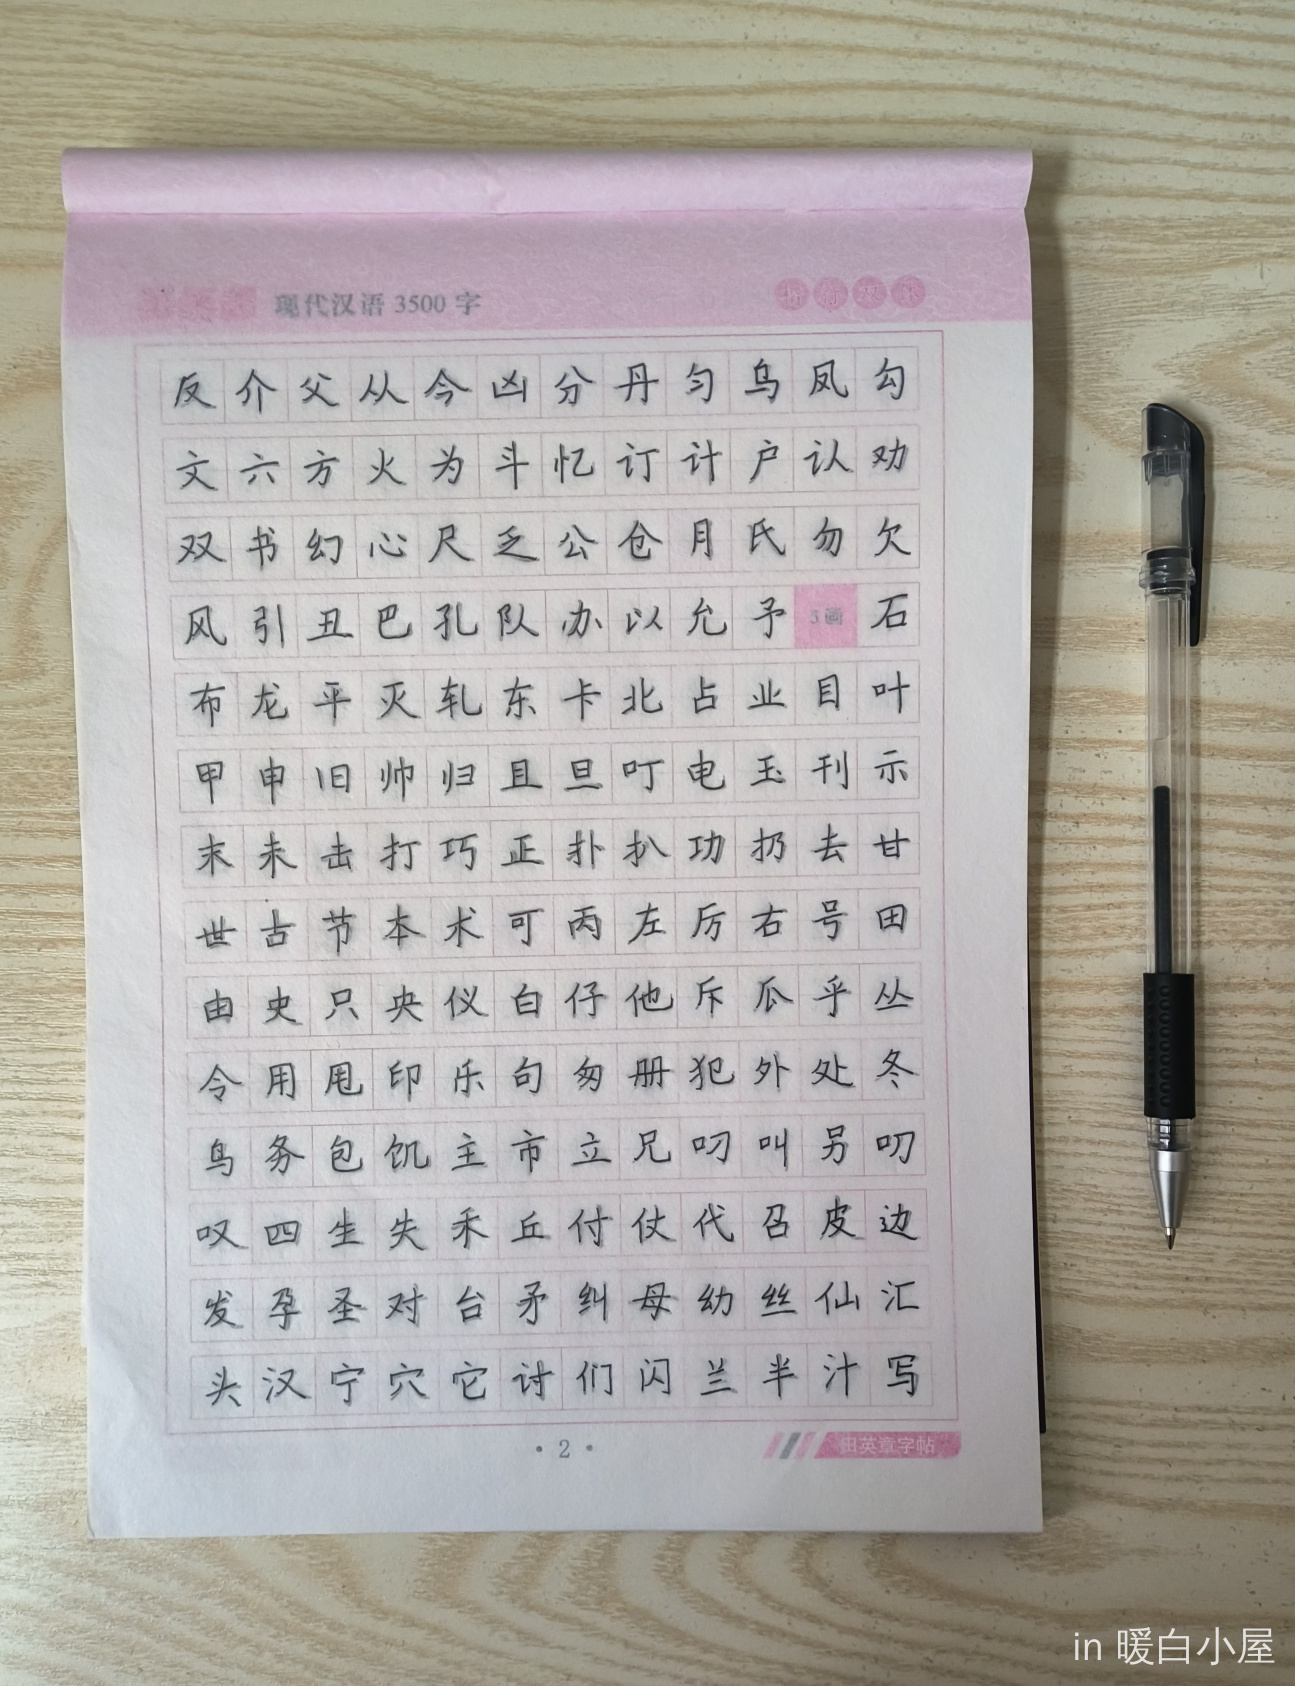 现代汉语 3500 字
楷行双体
反介父从今凶分丹匀乌凤勾
文六方火为斗忆订计户认劝
双书幻心尺乏公仓月氏勿欠
风引丑巴孔队办以允予5画石
布龙平灭轧东卡北占业目叶
甲申旧帅归且旦叮电玉刊示
末未击打巧正扑扒功扔去甘
世古节本术可丙左厉右号田
由史只央仪白仔他斥瓜乎丛
令用甩印乐句匆册犯外处冬
鸟务包饥主市立兄叼叫另叨
叹四生失禾丘付仗代召皮边
发孕圣对台矛纠母幼丝仙汇
头汉宁穴它讨们闪兰半汁写
• 2 •
田英章字帖
in 暖白小屋